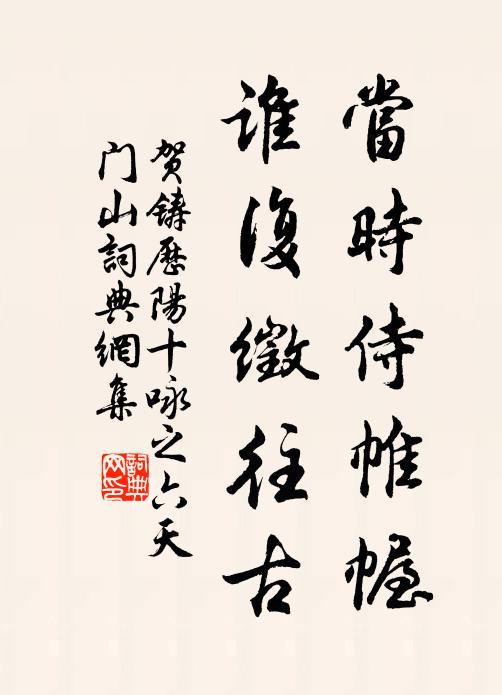 當時侍帷幄
誰復徵往古
贺鑄歷陽十咏之六天
门山詞典網集
詞典网印